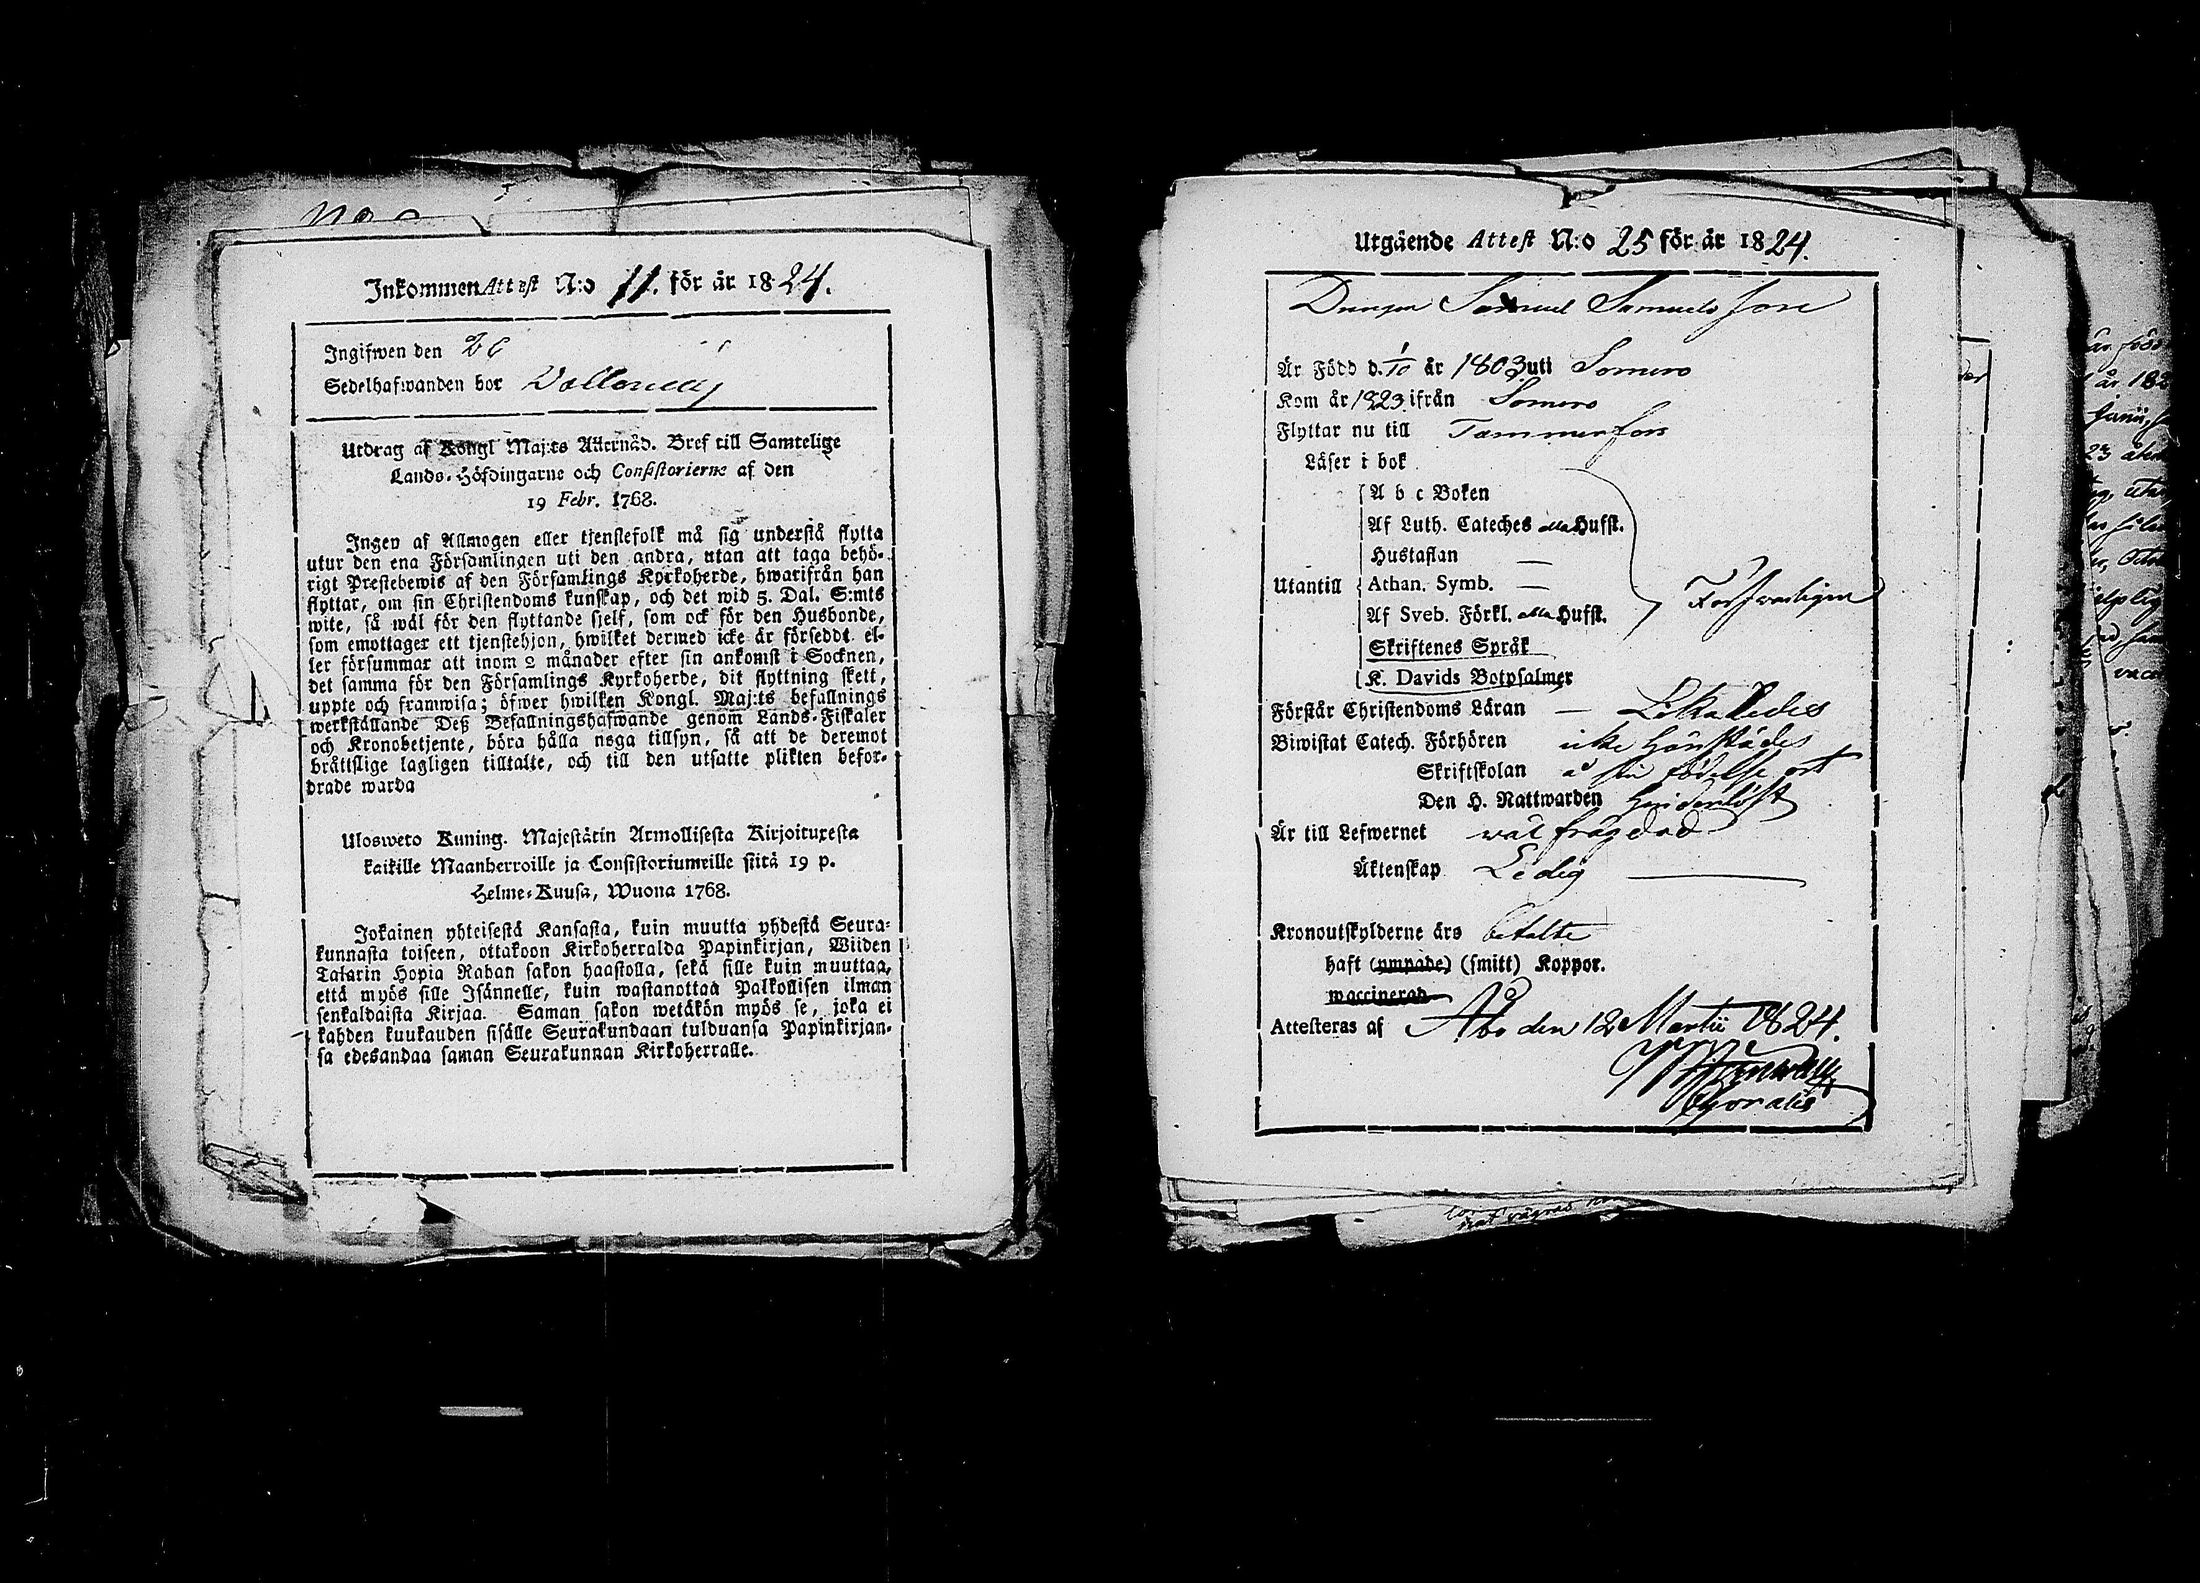 Inkommen Attest N:o 11. för år 1824.
Ingifwen den 26
Sedelhafwanden bor
Utdrag af Kongl Maj:ts Allernåd. Bref till Samtelige
Lands-Höfdingarne och Consistorierne af den
19 Febr. 1768.
Ingen af Allmogen eller tjenstefolk må sig understå flytta
utur den ena Församlingen uti den andra, utan att taga behö-
rigt Prestebewis af den Församlings Kyrkoherde, hwarifrån han
flyttar, om sin Christendoms kunskap, och det wid 5. Dal. S:mts
wite, så wäl för den flyttande sjelf, som ock för den Husbonde,
som emottager ett tjenstehjon, hwilket dermed icke är förseddt el-
ler försummar att inom 2 månader efter sin ankomst i Socknen,
det samma för den Församlings Kyrkoherde, dit flyttning skett,
uppte och framwisa; öfwer hwilken Kongl. Maj:ts befallnings
werkställande Deß Befallningshafwande genom Lands-Fiskaler
och Kronobetjente, böra hålla noga tillsyn, så att de deremot
bråttslige lagligen tilltalte, och till den utsatte plikten befor-
drade warda
Ulosweto Kuning. Majestätin Armollisesta Kirjoituxesta
kaikille Maanherroille ja Consistoriumeille siitä 19 p.
Helme-Kuusa, Wuona 1768.
Jokainen yhteisestä Kansasta, kuin muutta yhdestä Seura-
kunnasta toiseen, ottakoon Kirkoherralda Papinkirjan, Wiiden
Talarin Hopia Rahan sakon haastolla, sekä sille kuin muuttaa,
että myös sille Isännelle, kuin wastanottaa Palkollisen ilman
senkaldaista Kirjaa. Saman sakon wetäkön myös se, joka ei
kahden kuukauden sisälle Seurakundaan tulduansa Papinkirjan-
sa edesandaa saman Seurakunnan Kirkoherralle.
Utgående Attest N:o 25 för år 1824.
Drengen Samuel Samuelsson
Är Född d. 1/10 år 1803 uti Somero
Kom år 1823 ifrån Somero
Flyttar nu till Tammerfors
Läser i bok
A b c Boken
Af Luth. Cateches alla Hufst.
Hustaflan —
Utantill Athan. Symb. —
Af Sveb. Förkl. alla Hufst.
Skriftenes Språk
K. Davids Botpsalmer
Förstår Christendoms Läran — Likaledes
Biwistat Catech. Förhören icke härstädes
Skriftskolan å sin födelse ort
Den H. Nattwarden
Är till Lefwernet wäl frägdad
Äktenskap Ledig —
Kronoutskylderne äro betalte
haft (ympade) (smitt) Koppor.
waccinerad
Attesteras af Åbo den 12 Martii 1824.